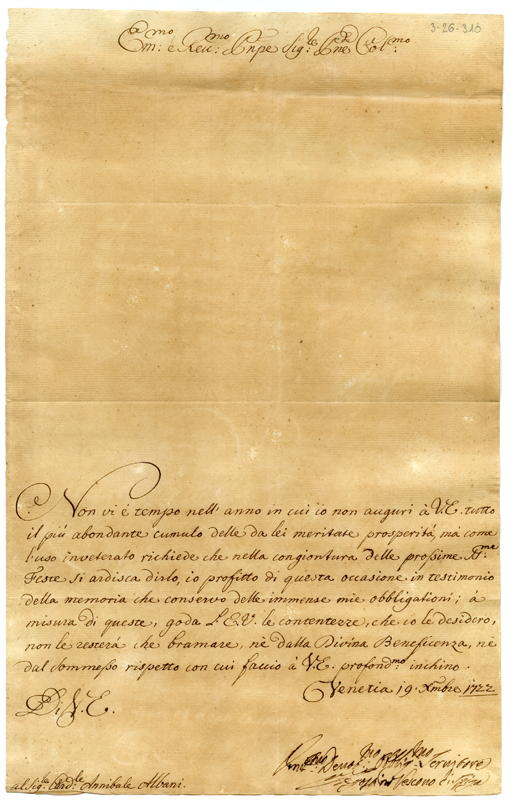 3-26-310
Em:mo e Reu:mo Pnpe Sig:re Pne Col:mo
Non vi è tempo nell' anno in cui io non auguri à V.E. tutto
il più abondante cumulo delle da lei meritate prosperità, mà come
l'uso inveterato richiede che nella congiontura delle prossime SS:me
Feste si ardisca dirlo, io profitto di questa occasione in testimonio
della memoria che conservo delle immense mie obbligationi; à
misura di queste, goda L'E.V. le contentezze, che io le desidero,
non le resterà che bramare, nè dalla Divina Beneficenza, nè
dal sommesso rispetto con cui faccio à V.E. profond:mo inchino.
Venetia 19. Xmbre 1722
Di V.E.
Deuot: Obblig: Servitore
al Sig: Card:le Annibale Albani.